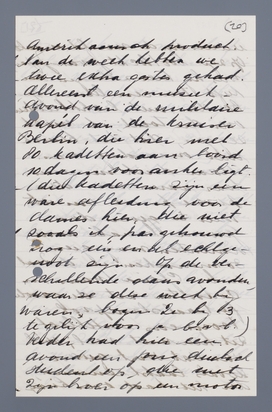 (20)
Amerikaansch product.
Van de week hebben we
twee extra gasten gehad.
Allereerst een muziek-
avond van de militaire
kapel van de kruiser
Berlin, die hier met
80 kadetten aan boord
10 dagen voor anker ligt
(die kadetten zijn een
ware afleiding voor de
dames hier, die niet
zooals ik pas getrouwd
nog één en al echtge-
noot zijn. Op de ver-
schillende dans avonden
waar ze dese week bij
waren,
tegelijk voor
Verder had hier een
avond een jong duitsch
student op, die met
zijn broer op een motor